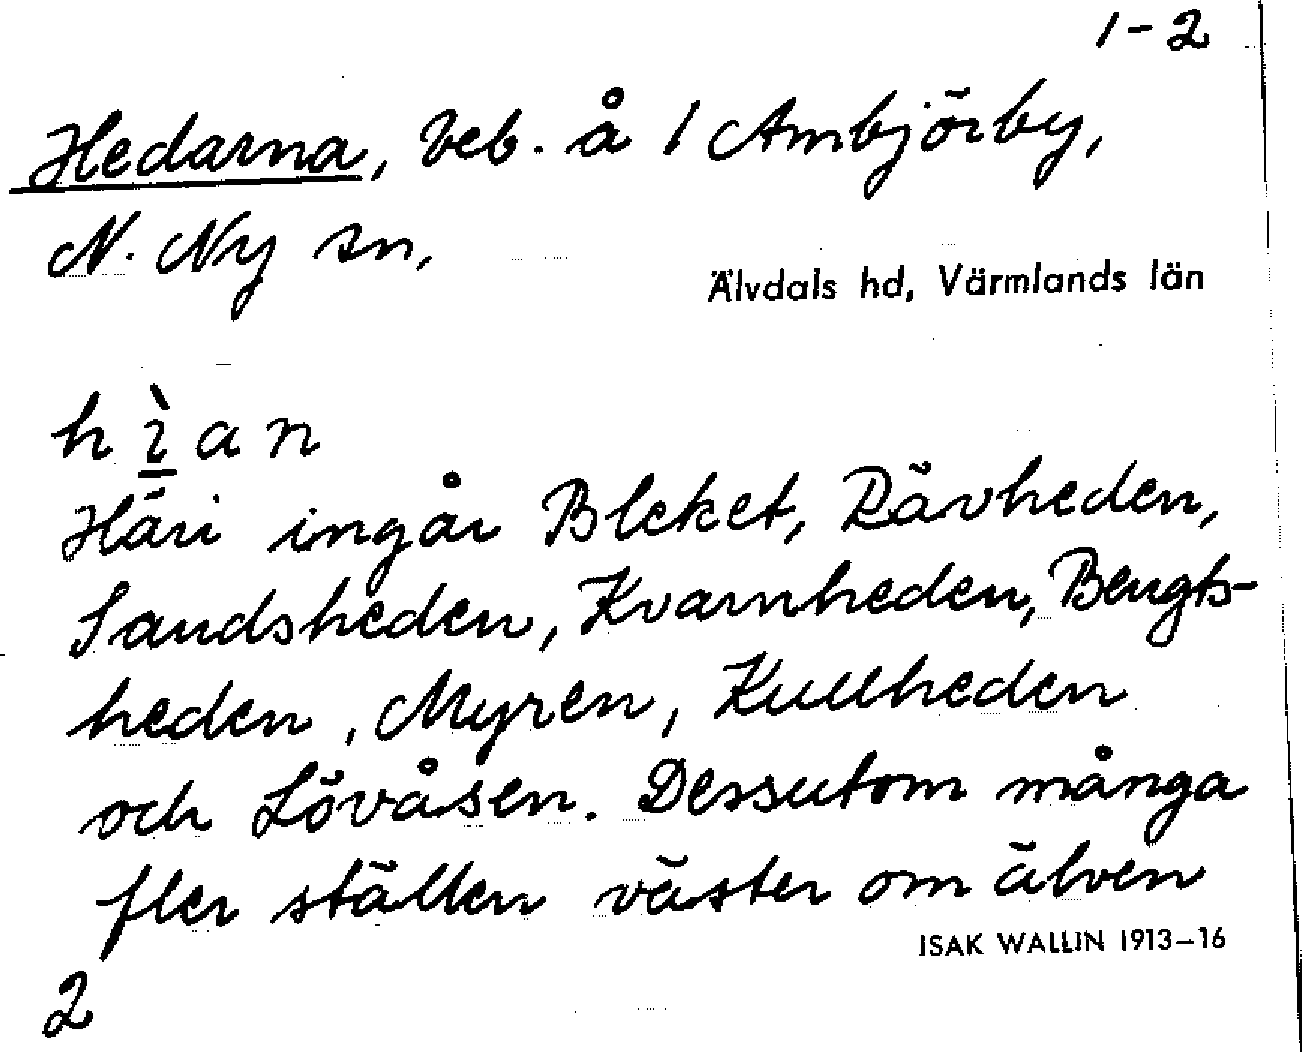 1-2
Hedarna, beb. å 1 Ambjörby,
N. Ny sn,
Älvdals hd, Värmlands län
h ì a n
Häri ingår Bleket, Rävheden,
Sandsheden, Kvarnheden, Bengts-
heden, Myren, Kullheden
och Lövåsen. Dessutom många
fler ställen väster om älven
ISAK WALLIN 1913–16
2